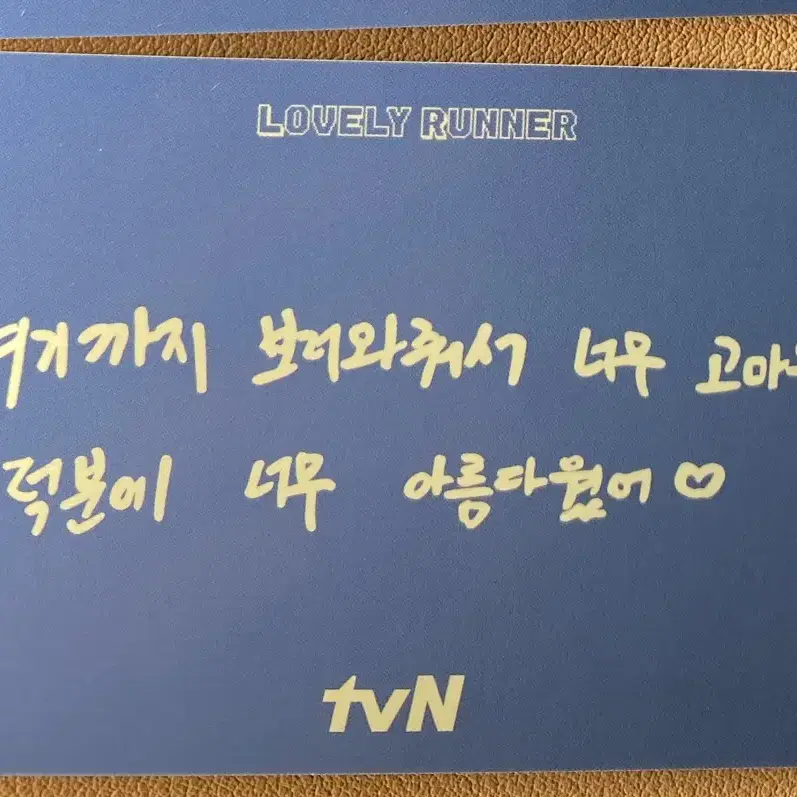 LOVELY RUNNER
여기까지 보러와줘서 너무 고마워
덕분에 너무 아름다웠어♡
tvN